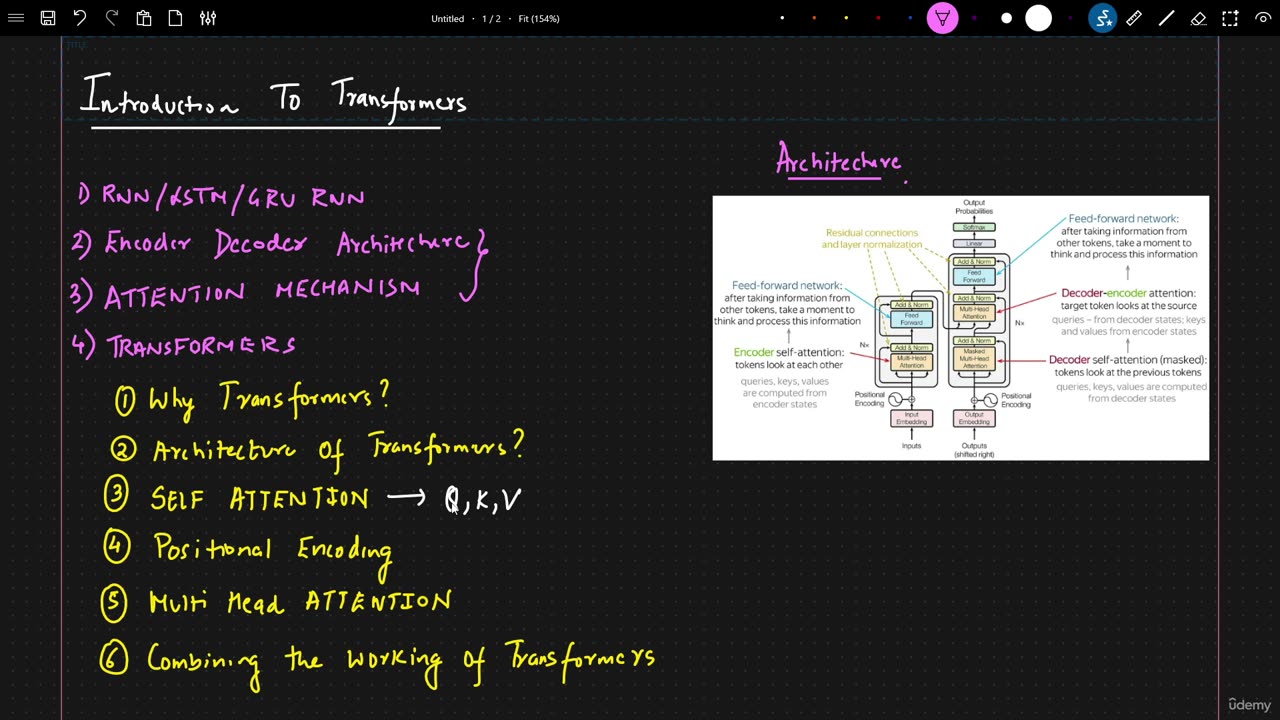 Untitled • 1 / 2 • Fit (154%)
TITLE
Introduction To Transformers
1) RNN/LSTM/GRU RNN
2) Encoder Decoder Architecture
3) ATTENTION MECHANISM
4) TRANSFORMERS
① Why Transformers?
② Architecture Of Transformers?
③ SELF ATTENTION → Q, K, V
④ Positional Encoding
⑤ Multi Head ATTENTION
⑥ Combining the working of Transformers
Architecture.
Residual connections
and layer normalization
Feed-forward network:
after taking information from
other tokens, take a moment to
think and process this information
Encoder self-attention:
tokens look at each other
queries, keys, values
are computed from
encoder states
Add & Norm
Feed
Forward
Nx
Add & Norm
Multi-Head
Attention
Positional
Encoding
Input
Embedding
Inputs
Output
Probabilities
Softmax
Linear
Add & Norm
Feed
Forward
Add & Norm
Multi-Head
Attention
Nx
Add & Norm
Masked
Multi-Head
Attention
Positional
Encoding
Output
Embedding
Outputs
(shifted right)
Feed-forward network:
after taking information from
other tokens, take a moment to
think and process this information
Decoder-encoder attention:
target token looks at the source
queries – from decoder states; keys
and values from encoder states
Decoder self-attention (masked):
tokens look at the previous tokens
queries, keys, values are computed
from decoder states
ûdemy